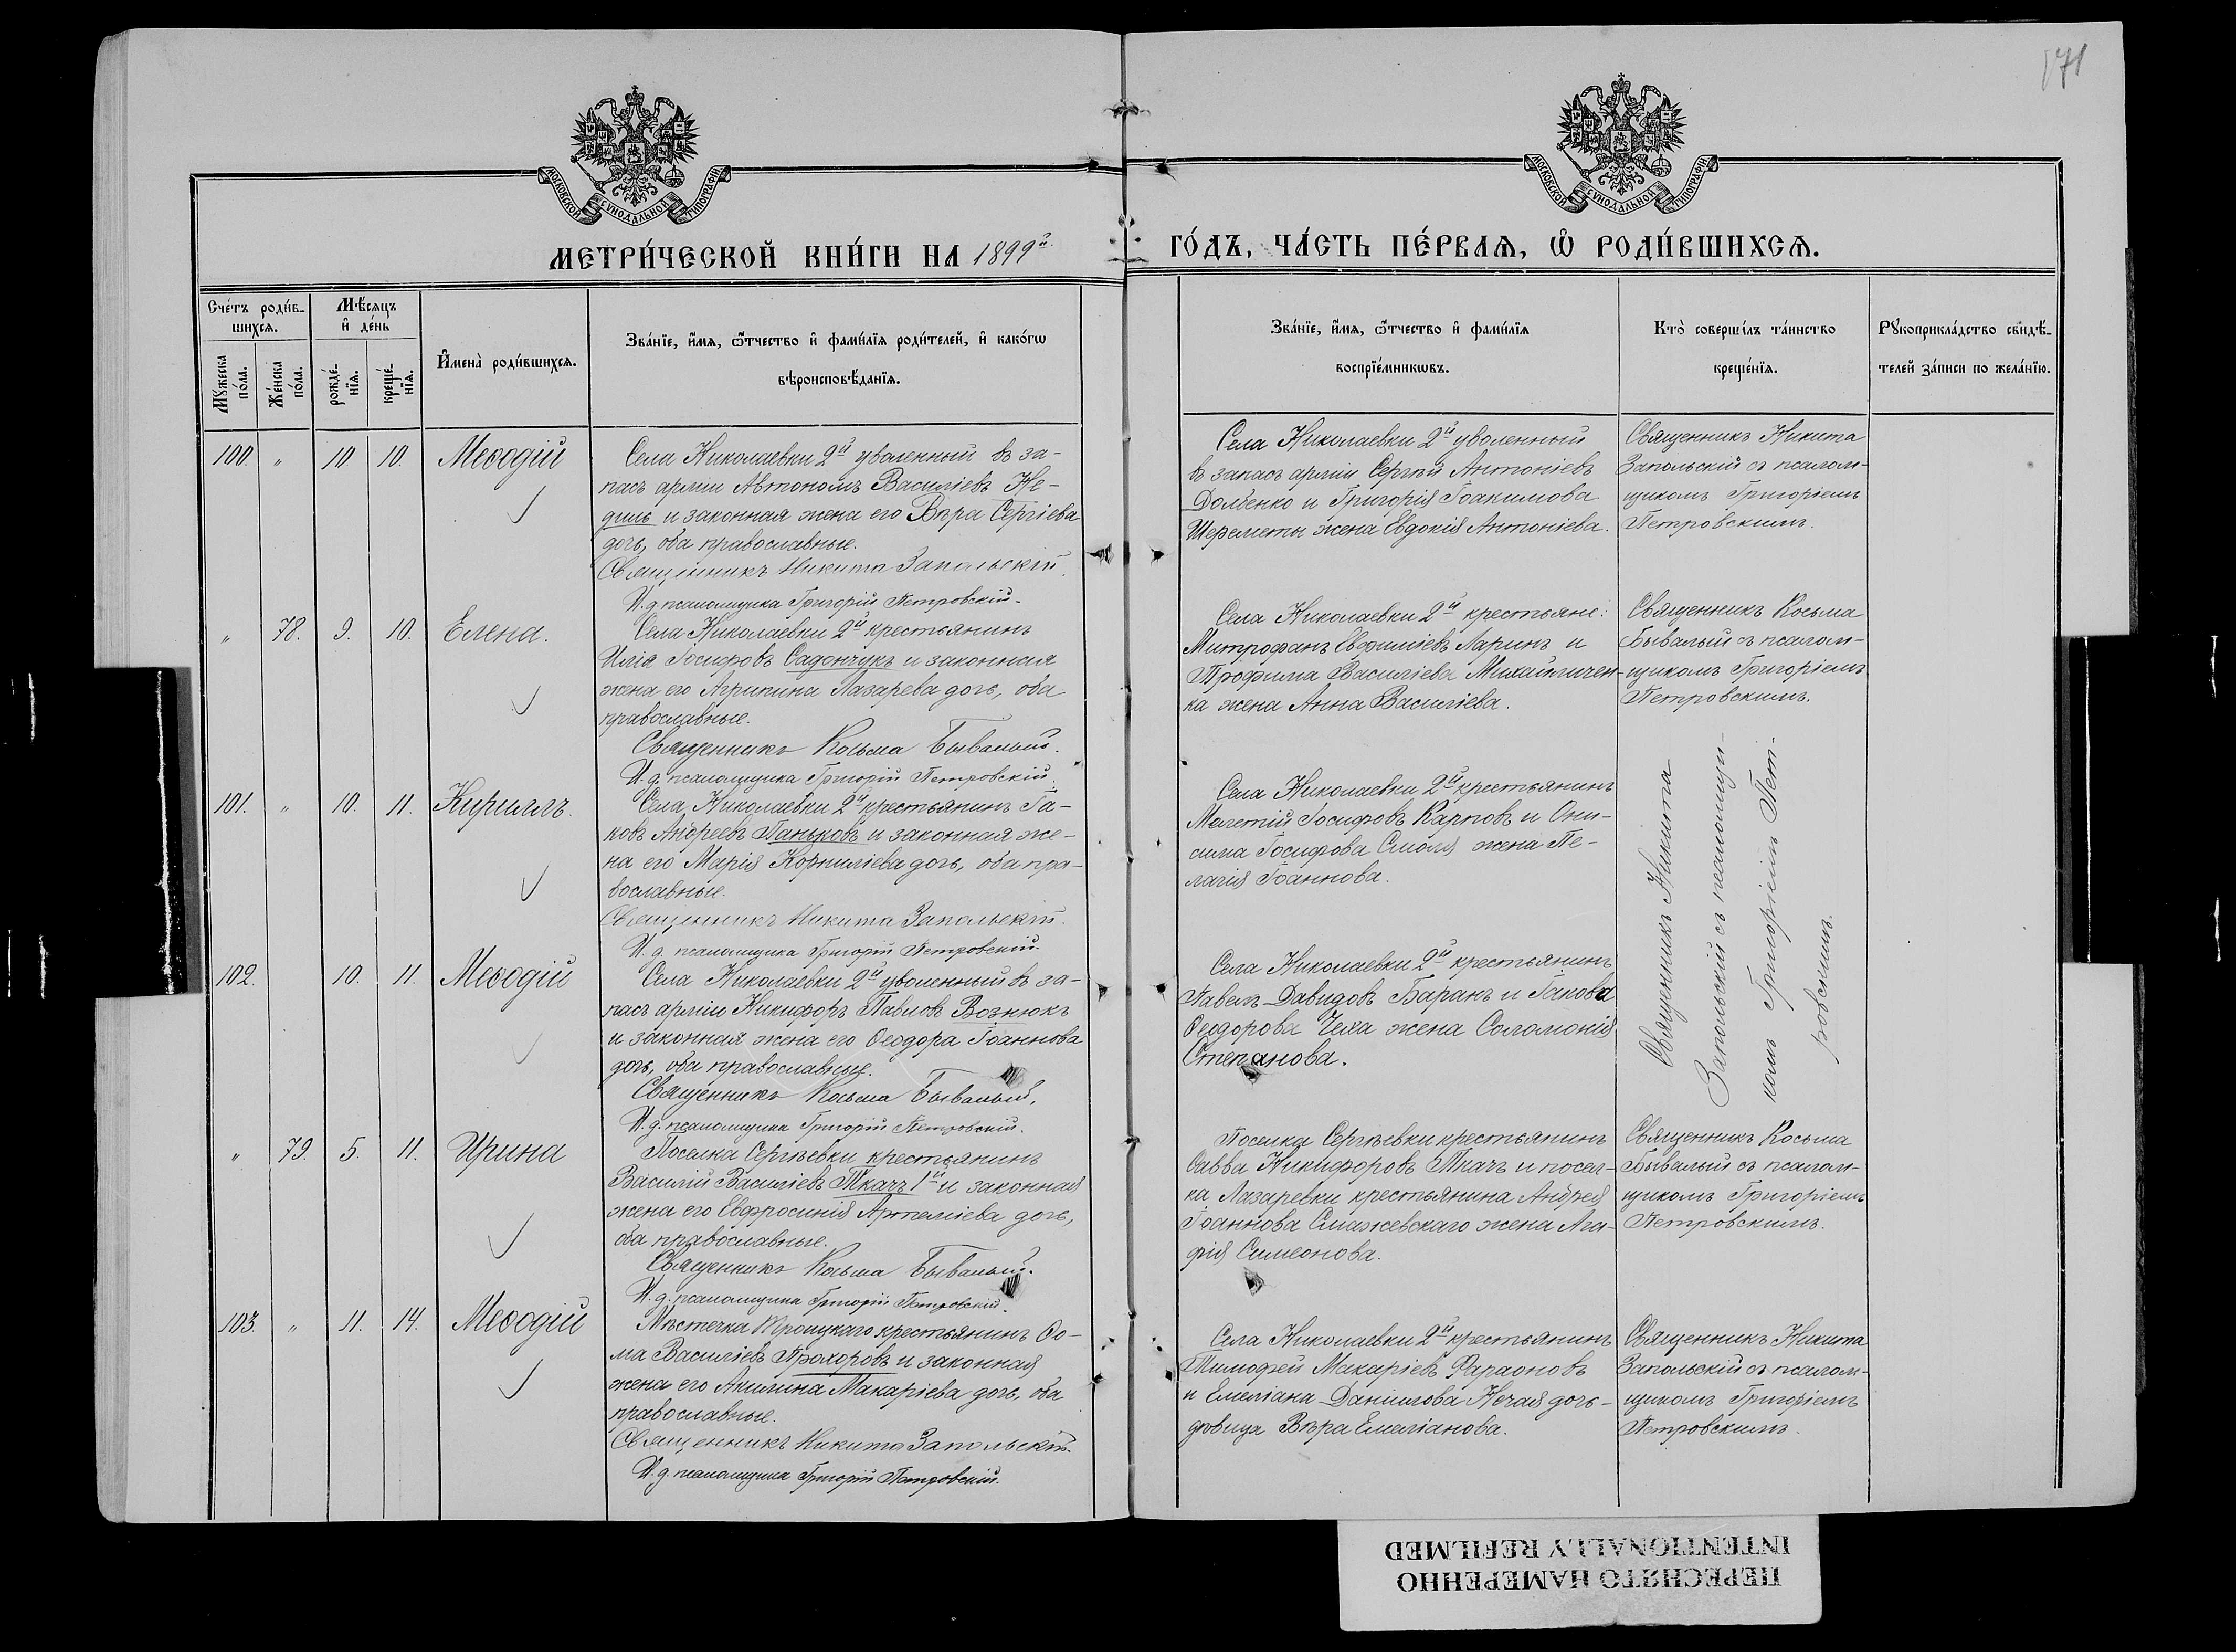 171
МОСКОВСКОЙ СѴНОДАЛЬНОЙ ТИПОГРАФІИ
МОСКОВСКОЙ СѴНОДАЛЬНОЙ ТИПОГРАФІИ
МЕТРИ́ЧЕСКОЙ КНИ́ГИ НА 1899й
ГО́ДЪ, ЧА́СТЬ ПЕ́РВАѦ, Ѡ РОДИ́ВШИХСѦ.
Сче́тъ роди́в-
шихсѧ.
Мꙋ́жеска
по́ла.
Же́нска
по́ла.
Мѣ́сѧцъ
и҆ де́нь
рожде́-
нїѧ.
креще́-
нїѧ.
И҆мена̀ роди́вшихсѧ.
Зва́нїе, и҆́мѧ, ѻ҆́тчество и҆ фами́лїѧ роди́телей, и҆ како́гѡ
вѣроисповѣ́данїѧ.
Зва́нїе, и҆́мѧ, ѻ҆́тчество и҆ фами́лїѧ
воспрїе́мникѡвъ.
Кто̀ соверши́лъ та́инство
креще́нїѧ.
Рꙋкоприкла́дство свидѣ́-
телей за́писи по жела́нїю.
100. " 10. 10. Меѳодій
Села Николаевки 2й уволенный въ за-
пасъ арміи Автономъ Василіевъ Не-
диль и законная жена его Вѣра Сергіева
дочь, оба православные.
Священникъ Никита Запольскій.
И. д. псаломщика Григорій Петровскій.
Села Николаевки 2й уволенный
въ запасъ арміи Сергѣй Антоніевъ
Долбенко и Григорія Іоакимова
Шереметы жена Евдокія Антоніева.
Священникъ Никита
Запольскій съ псалом-
щикомъ Григоріемъ
Петровскимъ.
" 78. 9. 10. Елена.
Села Николаевки 2й крестьянинъ
Илія Іосифовъ Садончукъ и законная
жена его Агрипина Лазарева дочь, оба
православные.
Священникъ Косьма Бывалый.
И. д. псаломщика Григорій Петровскій.
Села Николаевки 2й крестьяне:
Митрофанъ Евфиміевъ Ларинъ и
Трофима Василіева Михайличен-
ка жена Анна Василіева.
Священникъ Косьма
Бывалый съ псалом-
щикомъ Григоріемъ
Петровскимъ.
101. " 10. 11. Кириллъ.
Села Николаевки 2й крестьянинъ Іа-
ковъ Андреевъ Паньковъ и законная же-
на его Марія Корниліева дочь, оба пра-
вославные.
Священникъ Никита Запольскій.
И. д. псаломщика Григорій Петровскій.
Села Николаевки 2й крестьянинъ
Мелетій Іосифовъ Карповъ и Они-
сима Іосифова Смоля жена Пе-
лагія Іоаннова.
Священникъ Никита
Запольскій съ псаломщи-
комъ Григоріемъ Пет-
ровскимъ.
102. 10. 11. Меѳодій
Села Николаевки 2й уволенный въ за-
пасъ арміи Никифоръ Павловъ Вознюкъ
и законная жена его Ѳеодора Іоаннова
дочь, оба православные.
Священникъ Косьма Бывалый.
И. д. псаломщика Григорій Петровскій.
Села Николаевки 2й крестьянинъ
Павелъ Давидовъ Баранъ и Іакова
Ѳеодорова Чеха жена Соломонія
Степанова.
" 79. 5. 11. Ирина
Поселка Сергѣевки крестьянинъ
Василій Василіевъ Ткачъ 1й и законная
жена его Евфросинія Артеміева дочь,
оба православные.
Священникъ Косьма Бывалый.
И. д. псаломщика Григорій Петровскій.
Поселка Сергѣевки крестьянинъ
Савва Никифоровъ Ткачъ и посел-
ка Лазаревки крестьянина Андрея
Іоаннова Смажевскаго жена Ага-
фія Симеонова.
Священникъ Косьма
Бывалый съ псалом-
щикомъ Григоріемъ
Петровскимъ.
103. " 11. 14. Меѳодій
Мѣстечка Троицкаго крестьянинъ Ѳо-
ма Василіевъ Прохоровъ и законная
жена его Акилина Макаріева дочь, оба
православные.
Священникъ Никита Запольскій.
И. д. псаломщика Григорій Петровскій.
Села Николаевки 2й крестьянинъ
Тимофей Макаріевъ Фараоновъ
и Емеліана Даніилова Нечая дочь-
дѣвица Вѣра Емеліанова.
Священникъ Никита
Запольскій съ псалом-
щикомъ Григоріемъ
Петровскимъ.
ПЕРЕСНЯТО НАМЕРЕННО
INTENTIONALLY REFILMED